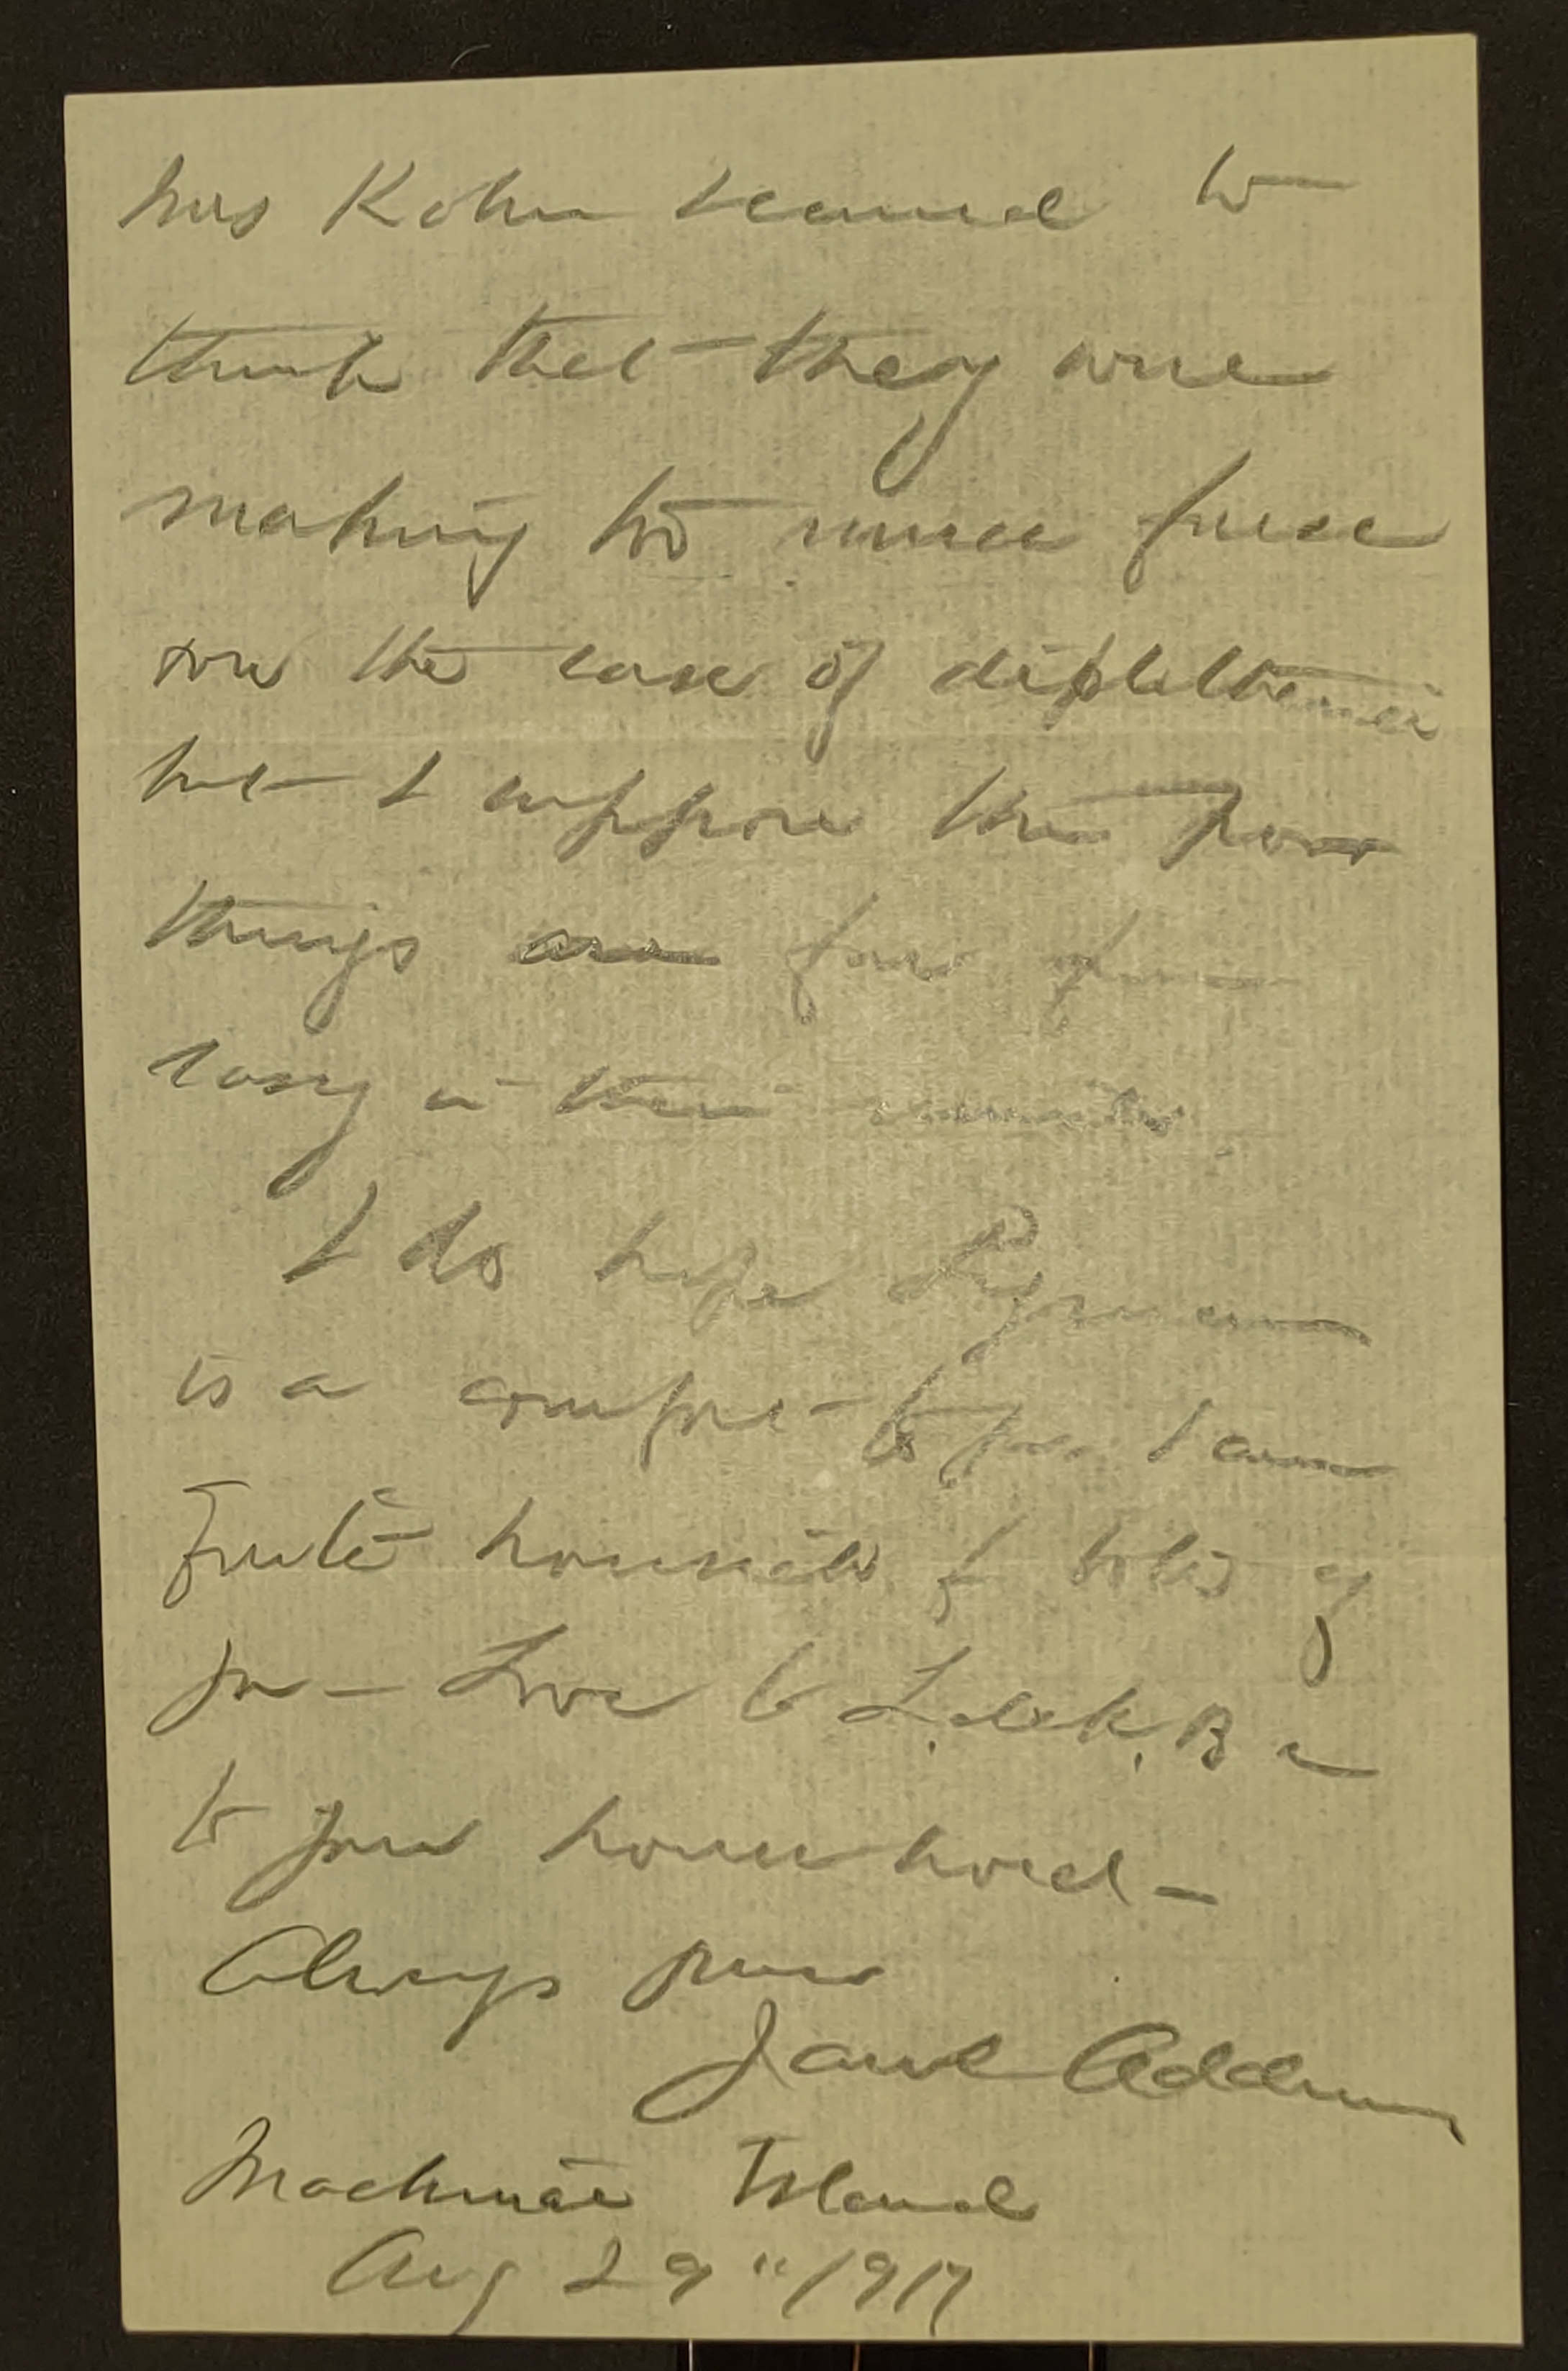 Mrs Kohn seemed to
think that they were
making too much fuss
over the case of diphtheria
but I suppose the poor
things are far from
easy in their minds.
I do hope Lyman
is a comfort to you I am
quite homesick for bits of
you – Love to L. B &
to your household –
Always yours
Jane Addams
Mackinac Island
Aug 29" 1917